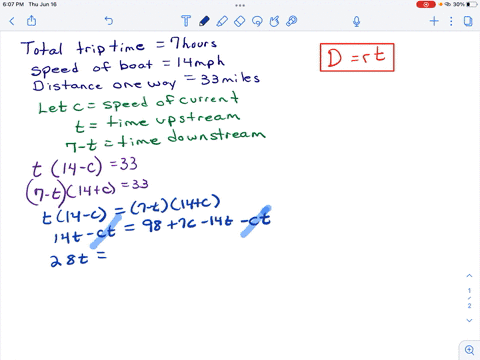 6:07 PM Thu Jun 16
30%
Total trip time = 7hours
speed of boat = 14mph
Distance one way = 33miles
D = rt
Let c = speed of current
t = time upstream
7-t = time downstream
t (14-c) = 33
(7-t)(14+c) = 33
t(14-c) = (7-t)(14+c)
14t - ct = 98 + 7c - 14t - ct
28t =
1
2